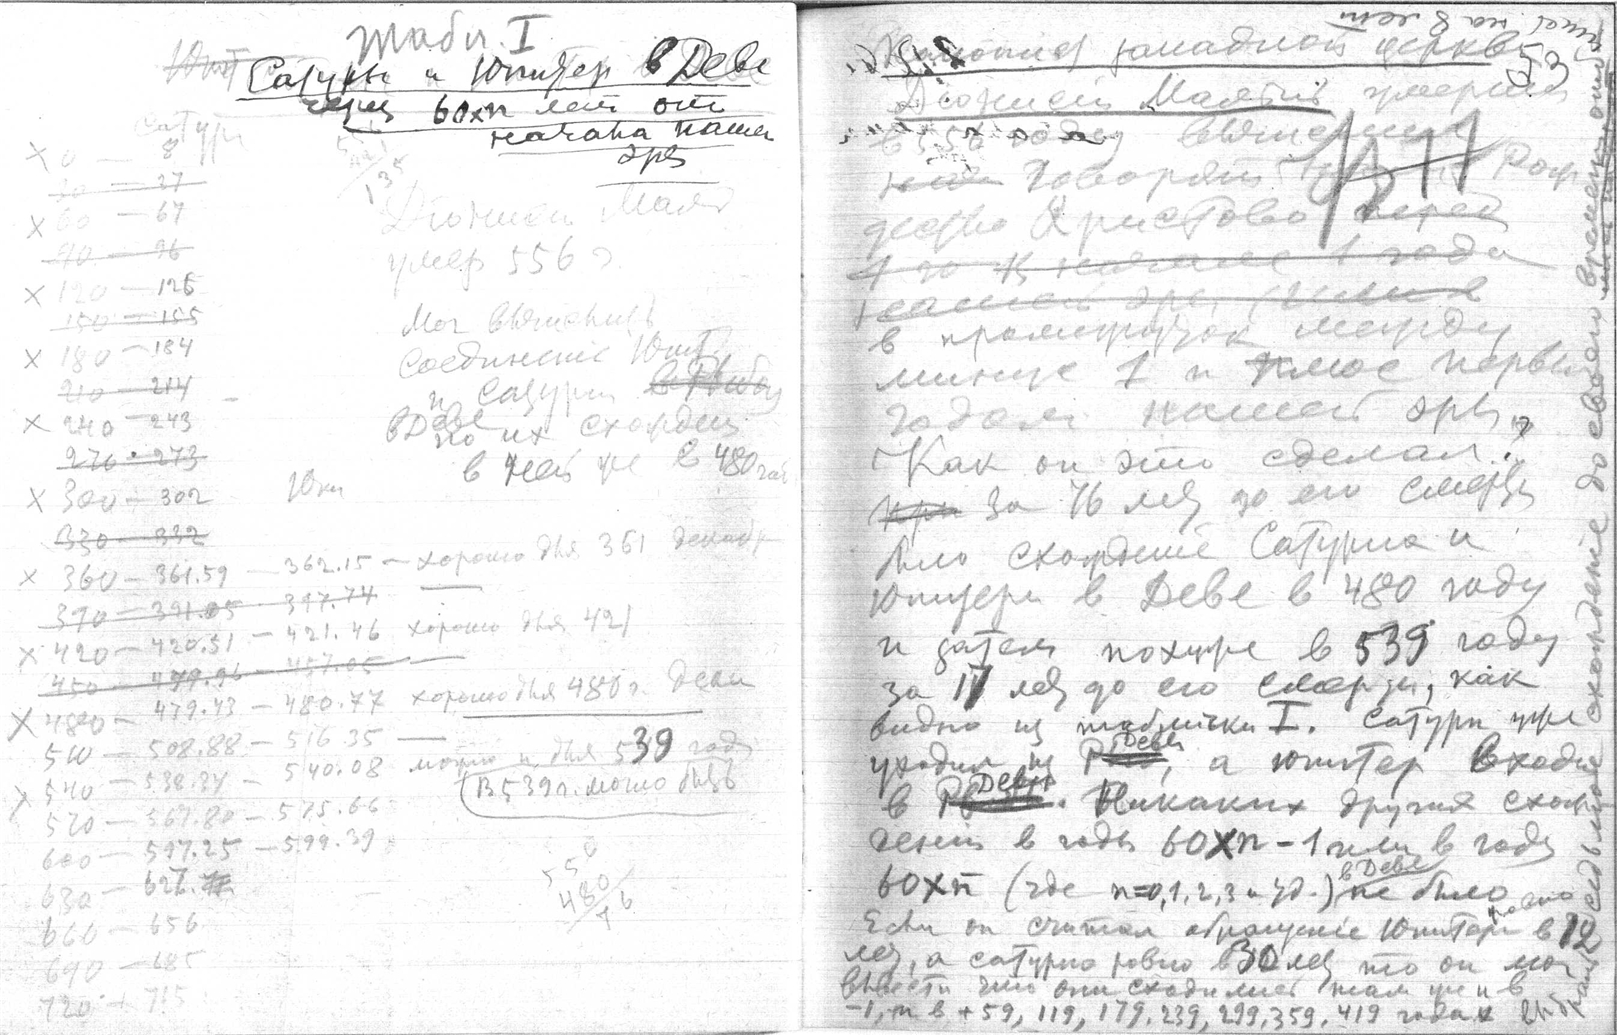 Табл. I
Сатурн и Юпитер в Деве
через 60хп лет от
начала нашей
эры
Сатурн
x 0 — 8
30 — 37
x 60 — 67
90 — 96
x 120 — 126
150 — 155
x 180 — 184
210 — 214
x 240 — 243
270 — 273
x 300 — 302
330 — 332
x 360 — 361.59 — 362.15 — хорошо для 361
390 — 391.05 — 397.74 —
x 420 — 420.51 — 421.46 хорошо для 421
450 — 479.96 — 457.05 —
x 480 — 479.43 — 480.77 хорошо для 480 г.
510 — 508.88 — 516.35 —
x 540 — 538.34 — 540.08 можно и для 539 года
570 — 567.80 — 575.66
600 — 597.25 — 599.39
630 — 626.
660 — 656
690 — 685
720 + 715
Дионисий Малый
умер 556 г.
Мог вычислить
соединение Юпит.
и Сатурн
в Деве
по их схожден.
в ней же в 480
Юпи
В 539 г. могло быть
556
480
76
53
западной церкви
Дионисий Малый умерший
в 556 году вычислил
Говорят Рож
дество Христово
к начале 1 года
нашей эры
в промежуток между
минус 1 и плюс первым
годом нашей эры,
Как он это сделал?
За 76 лет до его смерти
было схождение Сатурна и
Юпитера в Деве в 480 году
и затем похуже в 539 году
за 17 лет до его смерти, как
видно из таблички I. Сатурн уже
уходил из Девы, а Юпитер входил
в Деву. Никаких других схож
дений в годы 60хn – 1 или в годы
60хn (где n=0,1,2,3 и т.д.) в Деве не было
Если он считал обращение Юпитера ровно в 12
лет, а сатурна ровно в 30 лет то он мог
вывести что они сходились там же и в
-1, и в +59, 119, 179, 239, 299, 359, 419 годах
схождение до своего времени
на 8 лет